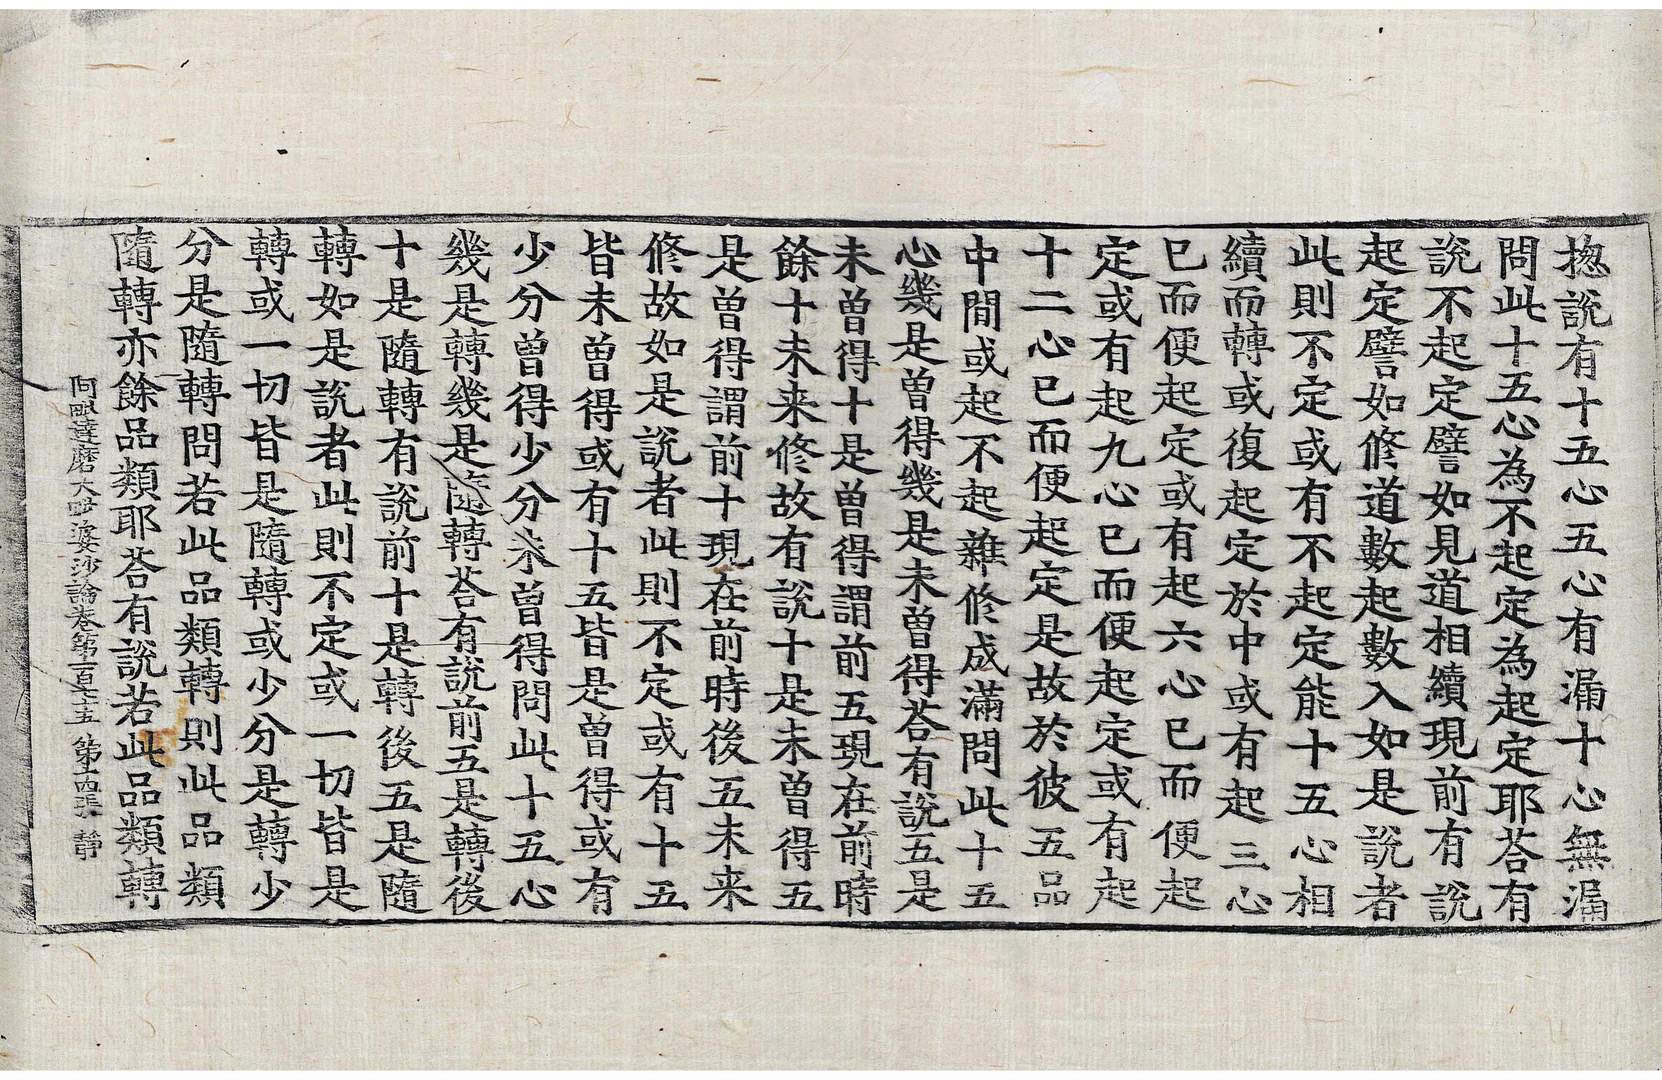 揔說有十五心五心有漏十心無漏
問此十五心為不起定為起定耶荅有
說不起定譬如見道相續現前有說
起定譬如修道數起數入如是說者
此則不定或有不起定能十五心相
續而轉或復起定於中或有起三心
已而便起定或有起六心已而便起
定或有起九心已而便起定或有起
十二心已而便起定是故於彼五品
中間或起不起雜修成滿問此十五
心幾是曽得幾是未曽得荅有說五是
未曽得十是曽得謂前五現在前時
餘十未来修故有說十是未曽得五
是曽得謂前十現在前時後五未来
修故如是說者此則不定或有十五
皆未曽得或有十五皆是曽得或有
少分曽得少分未曽得問此十五心
幾是轉幾是隨轉荅有說前五是轉後
十是隨轉有說前十是轉後五是隨
轉如是說者此則不定或一切皆是
轉或一切皆是隨轉或少分是轉少
分是隨轉問若此品類轉則此品類
隨轉亦餘品類耶荅有說若此品類轉
阿毗達磨大毗婆沙論卷第一百七十五 第十四張 靜